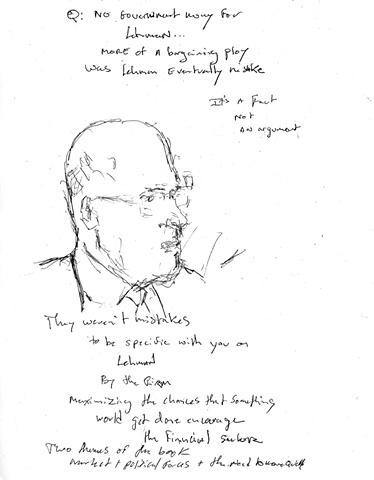 Q: No Government money for
Lehman...
more of a bargaining ploy
was Lehman Eventually mistake
It's a fact
not
an argument
They weren't mistakes
to be specific with you on
Lehman
By the
maximizing the chances that something
would get done encourage
the Financial
Two themes of the book
market + political forces + the need to move quickly